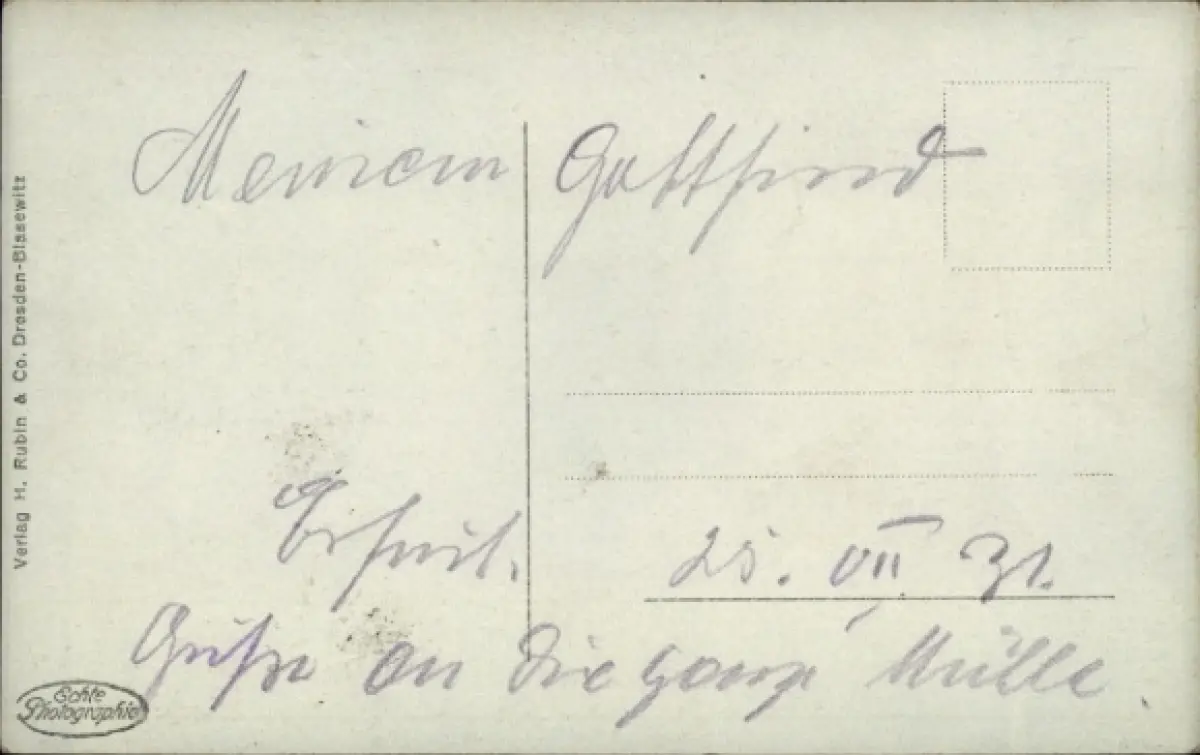 Meinem Gottfried
Erhard.
25. VII 31.
Grüße an die ganze Mühle
Verlag H. Rubin & Co. Dresden-Blasewitz
Echte
Photographie